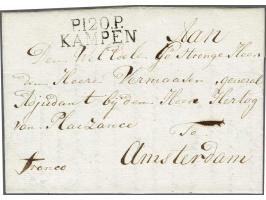 P.120.P. Aan
KAMPEN
Den Wel Edele Gestrenge Heer
den Heere Vermaasen, general
Adjudant bij den Heer Hertog
van Plaizance
Te
franco Amsterdam